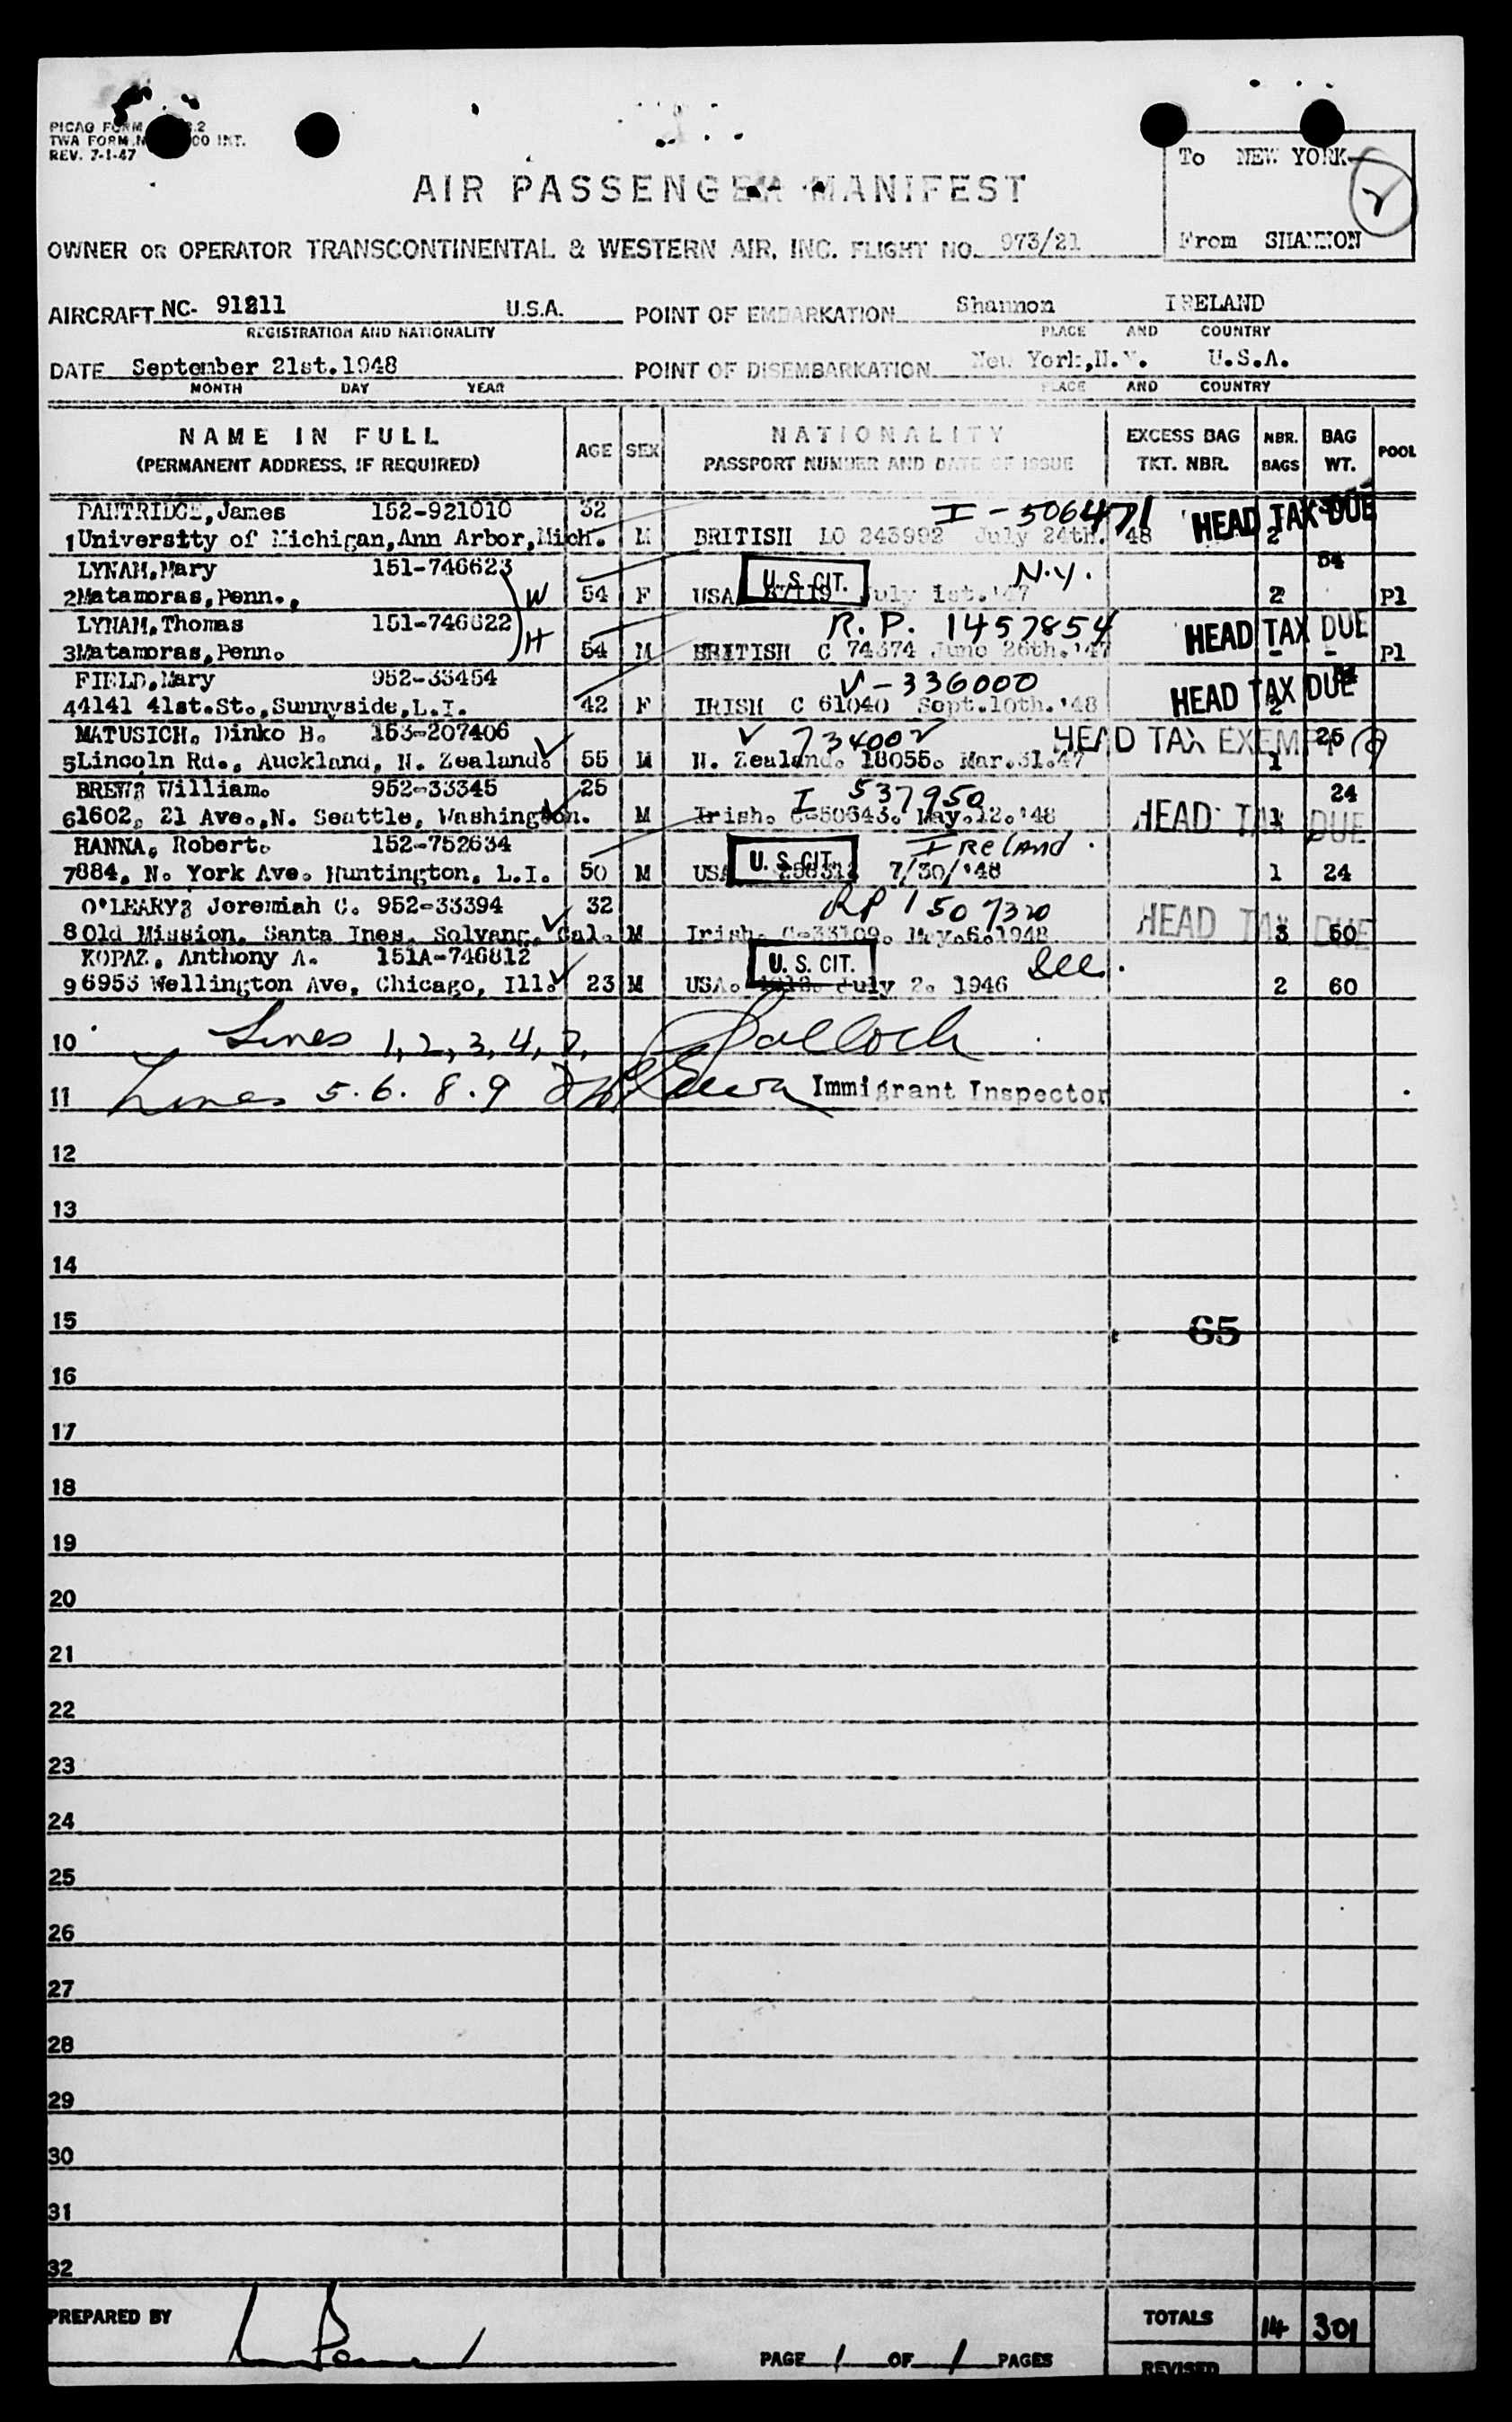 PICAO FORM
TWA FORM CO INT.
REV. 7-1-47
To NEW YORK
2
From SHANNON
AIR PASSENGER MANIFEST
OWNER OR OPERATOR TRANSCONTINENTAL & WESTERN AIR, INC. FLIGHT NO. 973/21
AIRCRAFT NC- 91211 U.S.A. POINT OF EMBARKATION Shannon IRELAND
REGISTRATION AND NATIONALITY PLACE AND COUNTRY
DATE September 21st.1948 POINT OF DISEMBARKATION New York,N.Y. U.S.A.
MONTH DAY YEAR PLACE AND COUNTRY
NAME IN FULL AGE SEX NATIONALITY EXCESS BAG NBR. BAG POOL
(PERMANENT ADDRESS, IF REQUIRED) PASSPORT NUMBER AND DATE OF ISSUE TKT. NBR. BAGS WT.
PARTRIDGE,James 152-921010 32 I-506471 HEAD TAX DUE
1 University of Michigan,Ann Arbor,Mich. M BRITISH LO 243992 July 24th. '48 2
LYNAM,Mary 151-746623 U.S. CIT. N.Y. 54
2 Matamoras,Penn., W 54 F USA July 1st.'47 2 Pl
LYNAM,Thomas 151-746622 R.P. 1457854 HEAD TAX DUE
3 Matamoras,Penn. H 54 M BRITISH C 74374 June 26th.'47 - - Pl
FIELD,Mary 952-33454 V-336000 HEAD TAX DUE
4 4141 41st.St.,Sunnyside,L.I. 42 F IRISH C 61040 Sept.10th.'48 2
MATUSICH. Dinko B. 153-207406 V 734002 HEAD TAX EXEMPT 25
5 Lincoln Rd., Auckland, N. Zealand. 55 M N. Zealand. 18055. Mar.31.47 1
BREW, William. 952-33345 25 I 537950 24
6 1602, 21 Ave.,N. Seattle, Washington. M Irish. C-50643. May.12.'48 HEAD TAX DUE 1
HANNA, Robert. 152-752634 U.S. CIT. Ireland.
7 884, N. York Ave. Huntington, L.I. 50 M USA 7/30/'48 1 24
O'LEARY, Jeremiah C. 952-33394 32 RP 1507320 HEAD TAX DUE
8 Old Mission, Santa Ines, Solvang, Cal. M Irish. C-33109. May.6.1948 3 50
KOPAZ, Anthony A. 151A-746812 U.S. CIT. Ill.
9 6953 Wellington Ave, Chicago, Ill. 23 M USA. July 2. 1946 2 60
10 Lines 1,2,3,4,7,
11 Lines 5.6. 8.9 Immigrant Inspector
12
13
14
15 65
16
17
18
19
20
21
22
23
24
25
26
27
28
29
30
31
32
PREPARED BY TOTALS 14 301
PAGE 1 OF 1 PAGES REVISED